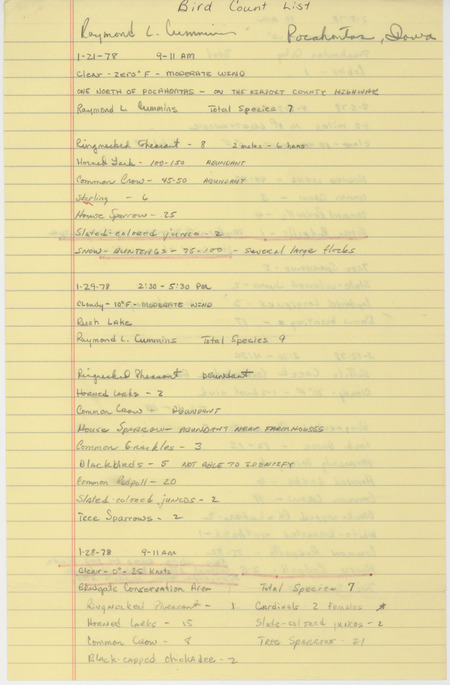 Bird Count List
Raymond L. Cummins Pocahontas, Iowa
1-21-78 9-11 AM
Clear - zero° F - moderate wind
one north of Pocahontas - on the airport county highway
Raymond L Cummins Total Species 7
Ringnecked Pheasant - 8 2 males - 6 hens
Horned Lark - 100-150 abundant
Common Crow - 45-50 abundant
Starling - 6
House Sparrow - 25
Slated-colored juncos - 2
Snow-Buntings - 75-100 - several large flocks
1-29-78 2:30 - 5:30 PM
Cloudy - 10° F - moderate wind
Rush Lake
Raymond L. Cummins Total Species 9
Ringnecked Pheasant abundant
Horned Larks - 2
Common Crow - abundant
House Sparrow - abundant near farmhouses
Common Grackles - 3
Blackbirds - 5 not able to identify
Common Redpoll - 20
Slated-colored juncos - 2
Tree Sparrows - 2
1-28-78 9-11 AM
Clear - 0° - 25 knots
Conservation Area Total Species 7
Ringnecked Pheasant - 1 Cardinals 2 females *
Horned Larks - 15 Slate-colored juncos - 2
Common Crow - 8 Tree Sparrow - 21
Black-capped chickadee - 2